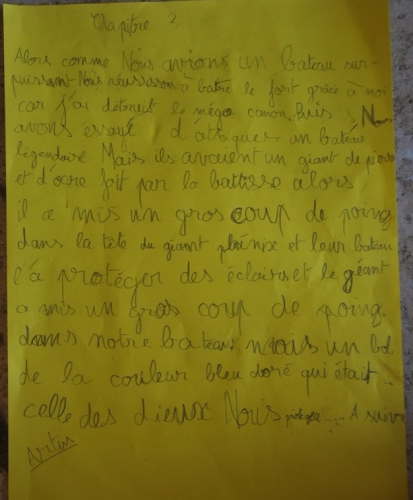 Chapitre 2
Alors comme Nous avions un bateau sur-
puissant Nous réussissons à batre le fort grâce à moi
car j'ai détruit le méga canon. Puis Nous
avons essayé d'attaquer un bateau
légendaire Mais ils avaient un géant de pierre
et d'ocre fait par la batisse alors
il a mis un gros coup de poing
dans la tête du géant phénix et leur bateau
l'a protéger des éclairs et le géant
a mis un gros coup de poing
dans notre bateau. mais un bol
de la couleur bleu doré qui était
celle des dieux Nous protégea..... A suivre
Artus